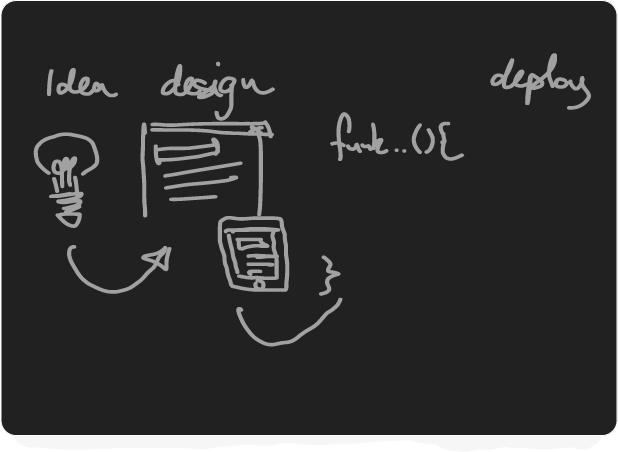 Idea design deploy
funk..(){
}